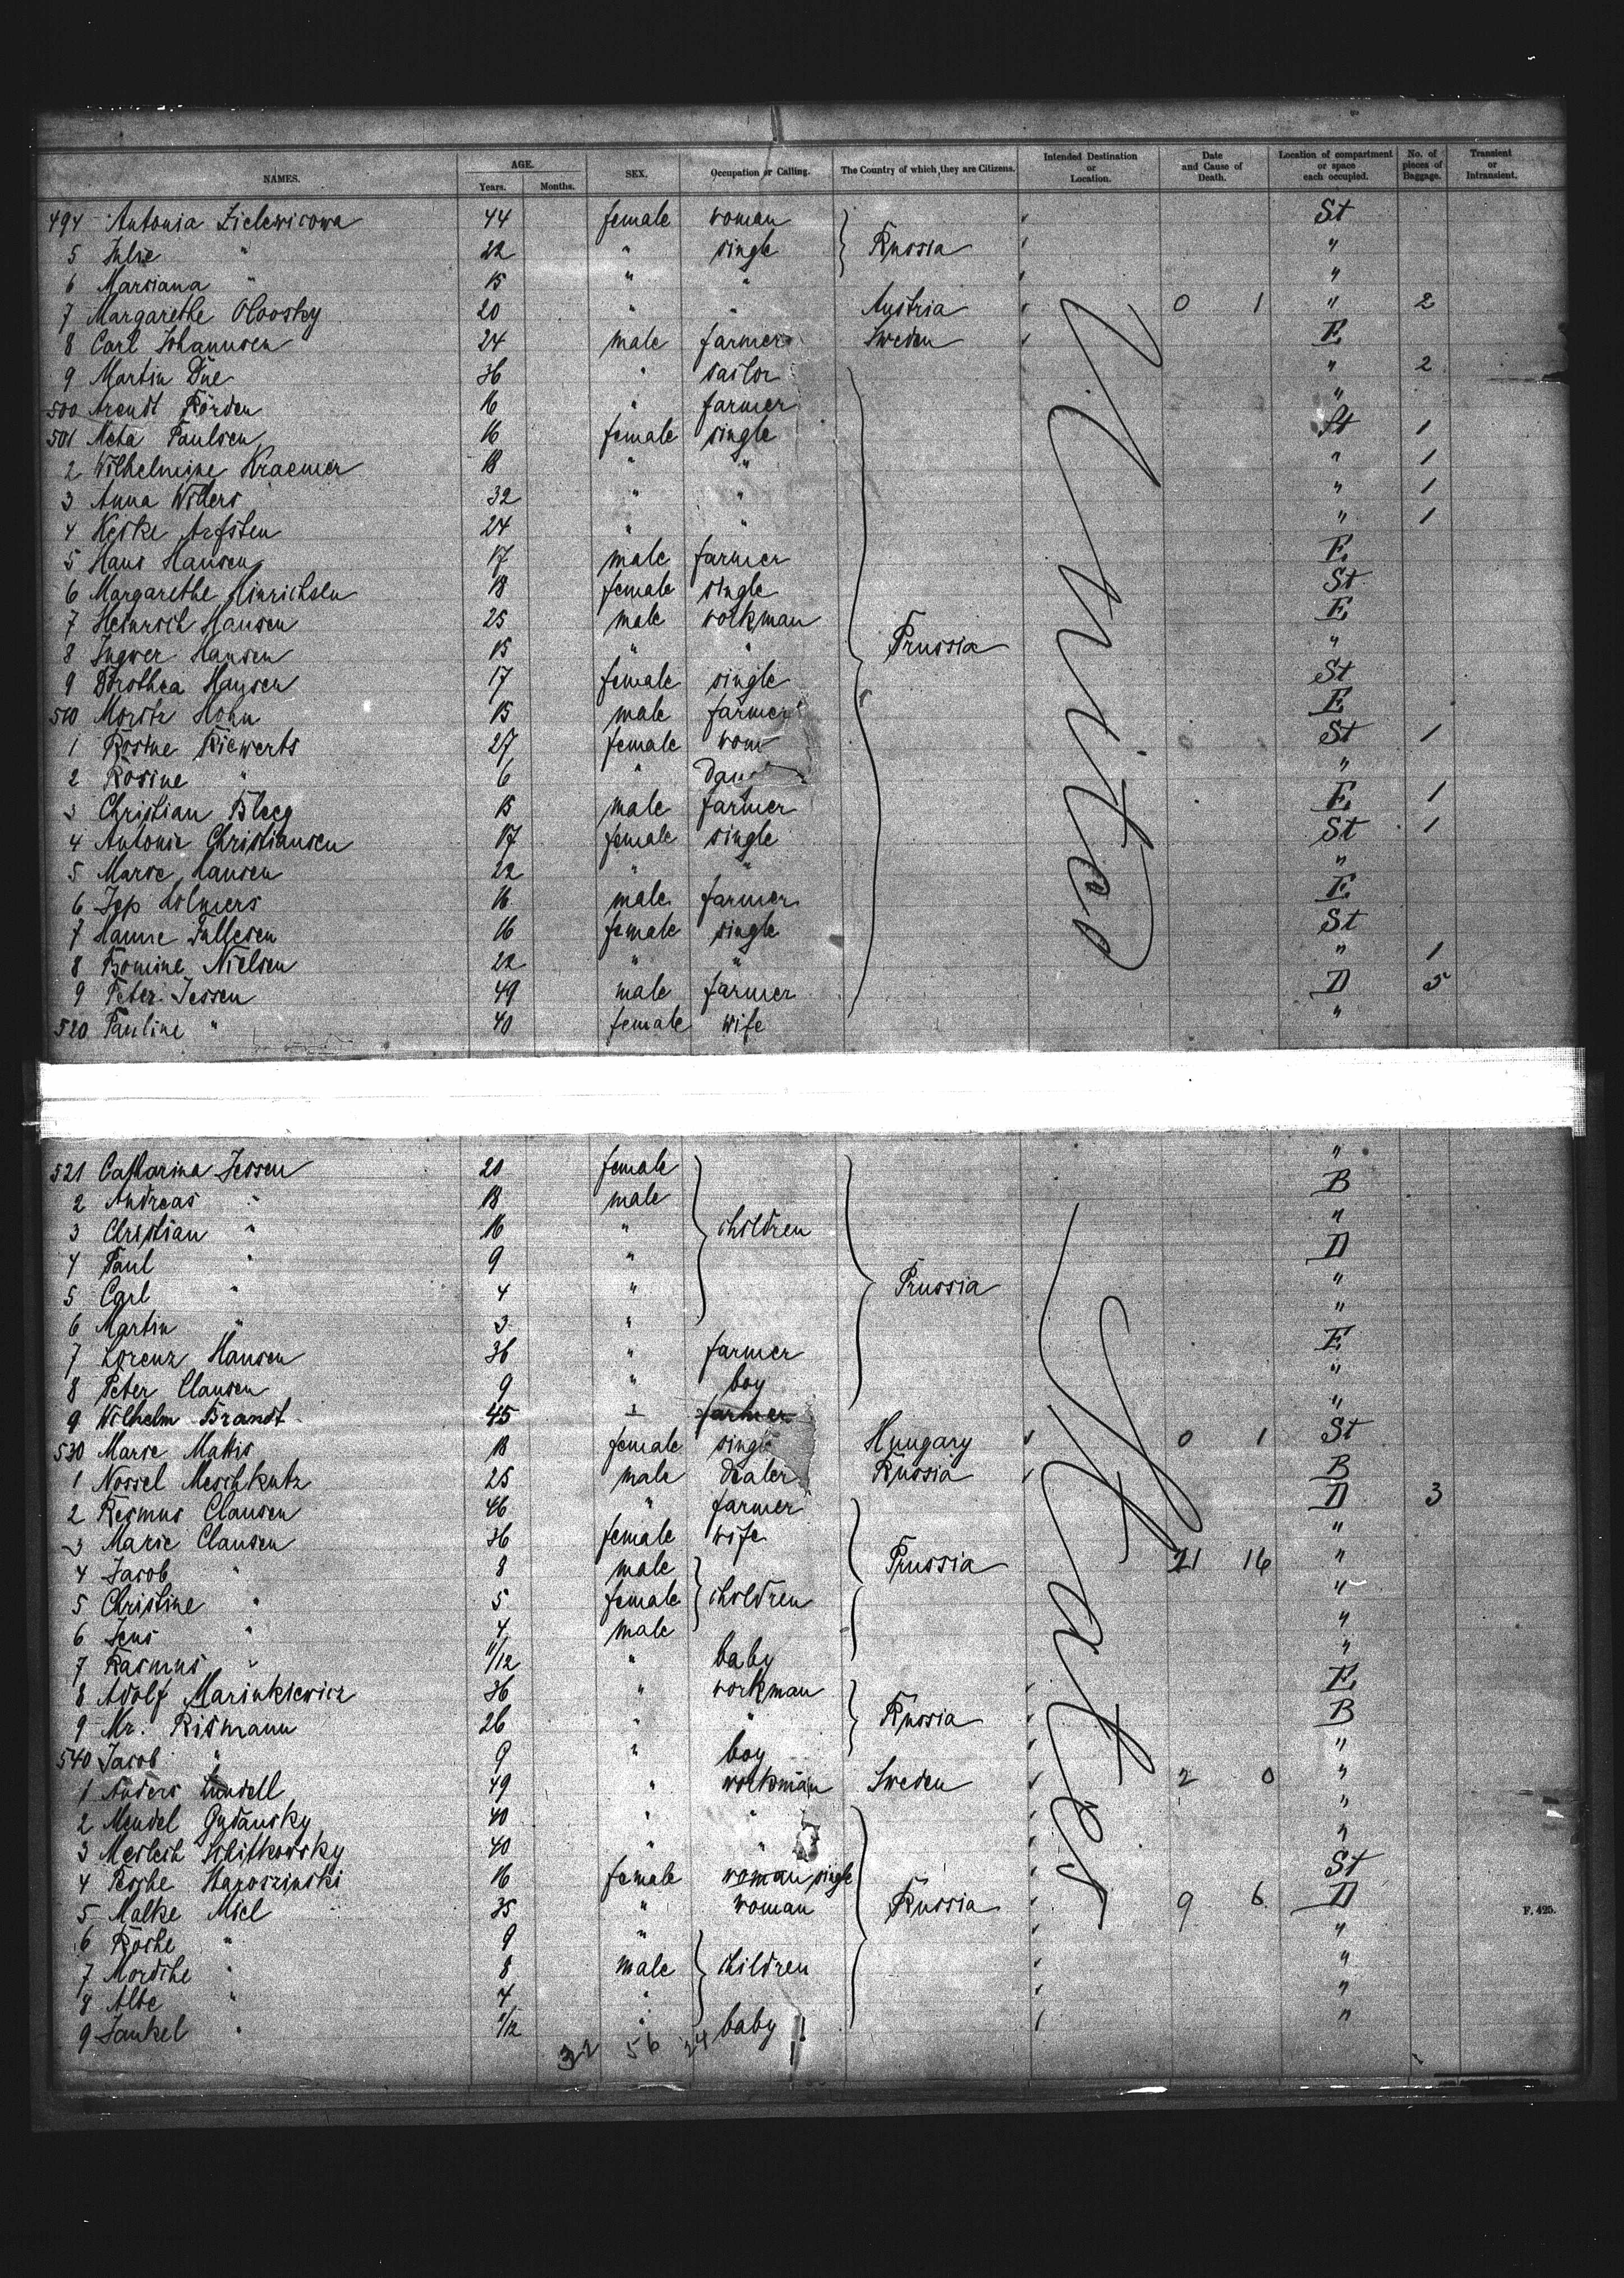 NAMES. AGE. Years. Months. SEX. Occupation or Calling. The Country of which they are Citizens. Intended Destination or Location. Date and Cause of Death. Location of compartment or space each occupied. No. of pieces of Baggage. Transient or Intransient.
494 Antonia Zielewicowa 44 female woman St
5 Julie " 22 " single Russia "
6 Marciana " 15 " " "
7 Margarethe 20 " " Austria 0 1 " 2
8 Carl Johannsen 24 male farmer Sweden E
9 Martin Due 36 " sailor " 2
500 Arendt Rörden 16 " farmer "
501 Meta Paulsen 16 female single St 1
2 Wilhelmine Kraemer 18 " " " 1
3 Anna Willers 32 " " " 1
4 Keike Arfsten 24 " " " 1
5 Hans Hansen 17 male farmer E
6 Margarethe Hinrichsen 18 female single St
7 Heinrich Hansen 25 male workman E
8 Ingwer Hansen 15 " " Prussia "
9 Dorothea Hansen 17 female single St
510 Moritz Hohn 15 male farmer E
1 Rosine Riewerts 27 female wom St 1
2 Rosine " 6 " daug "
3 Christian 15 male farmer E 1
4 Antonie Christiansen 17 female single St 1
5 Marie Hansen 22 " " "
6 Jep Lolmers 16 male farmer E
7 Hanne Tullesen 16 female single St
8 Bomine Nielsen 22 " " " 1
9 Peter Jessen 49 male farmer D 5
520 Pauline " 40 female wife "
521 Catharina Jessen 20 female "
2 Andreas " 18 male B
3 Christian " 16 " children "
4 Paul " 9 " D
5 Carl " 4 " Prussia "
6 Martin " 3 " "
7 Lorenz Hansen 36 " farmer E
8 Peter Clausen 9 " boy "
9 Wilhelm Brandt 45 " farmer "
530 Marie Makis 18 female singl Hungary 0 1 St
1 Nossel Meschkutz 25 male dealer Russia B
2 Rasmus Clausen 46 " farmer D 3
3 Marie Clausen 36 female wife "
4 Jacob " 8 male Prussia 21 16 "
5 Christine " 5 female children "
6 Jens " 4 male "
7 Rasmus " 11/12 " baby "
8 Adolf Marinkiewicz 36 " workman E
9 Mr. Rismann 26 " " Russia B
540 Jacob " 9 " boy "
1 Anders Lundell 49 " workman Sweden 2 0 "
2 Mendel Gudansky 40 " " "
3 Meslech Schitkowsky 40 " " "
4 Pesche Staroszinski 16 female woman single St
5 Malke Micl 35 " woman Russia 9 6 D
6 Rosche " 9 " "
7 Mordche " 8 male children "
8 Albe " 4 " "
9 Jankel " /12 " baby "
32 56 24
F. 425.